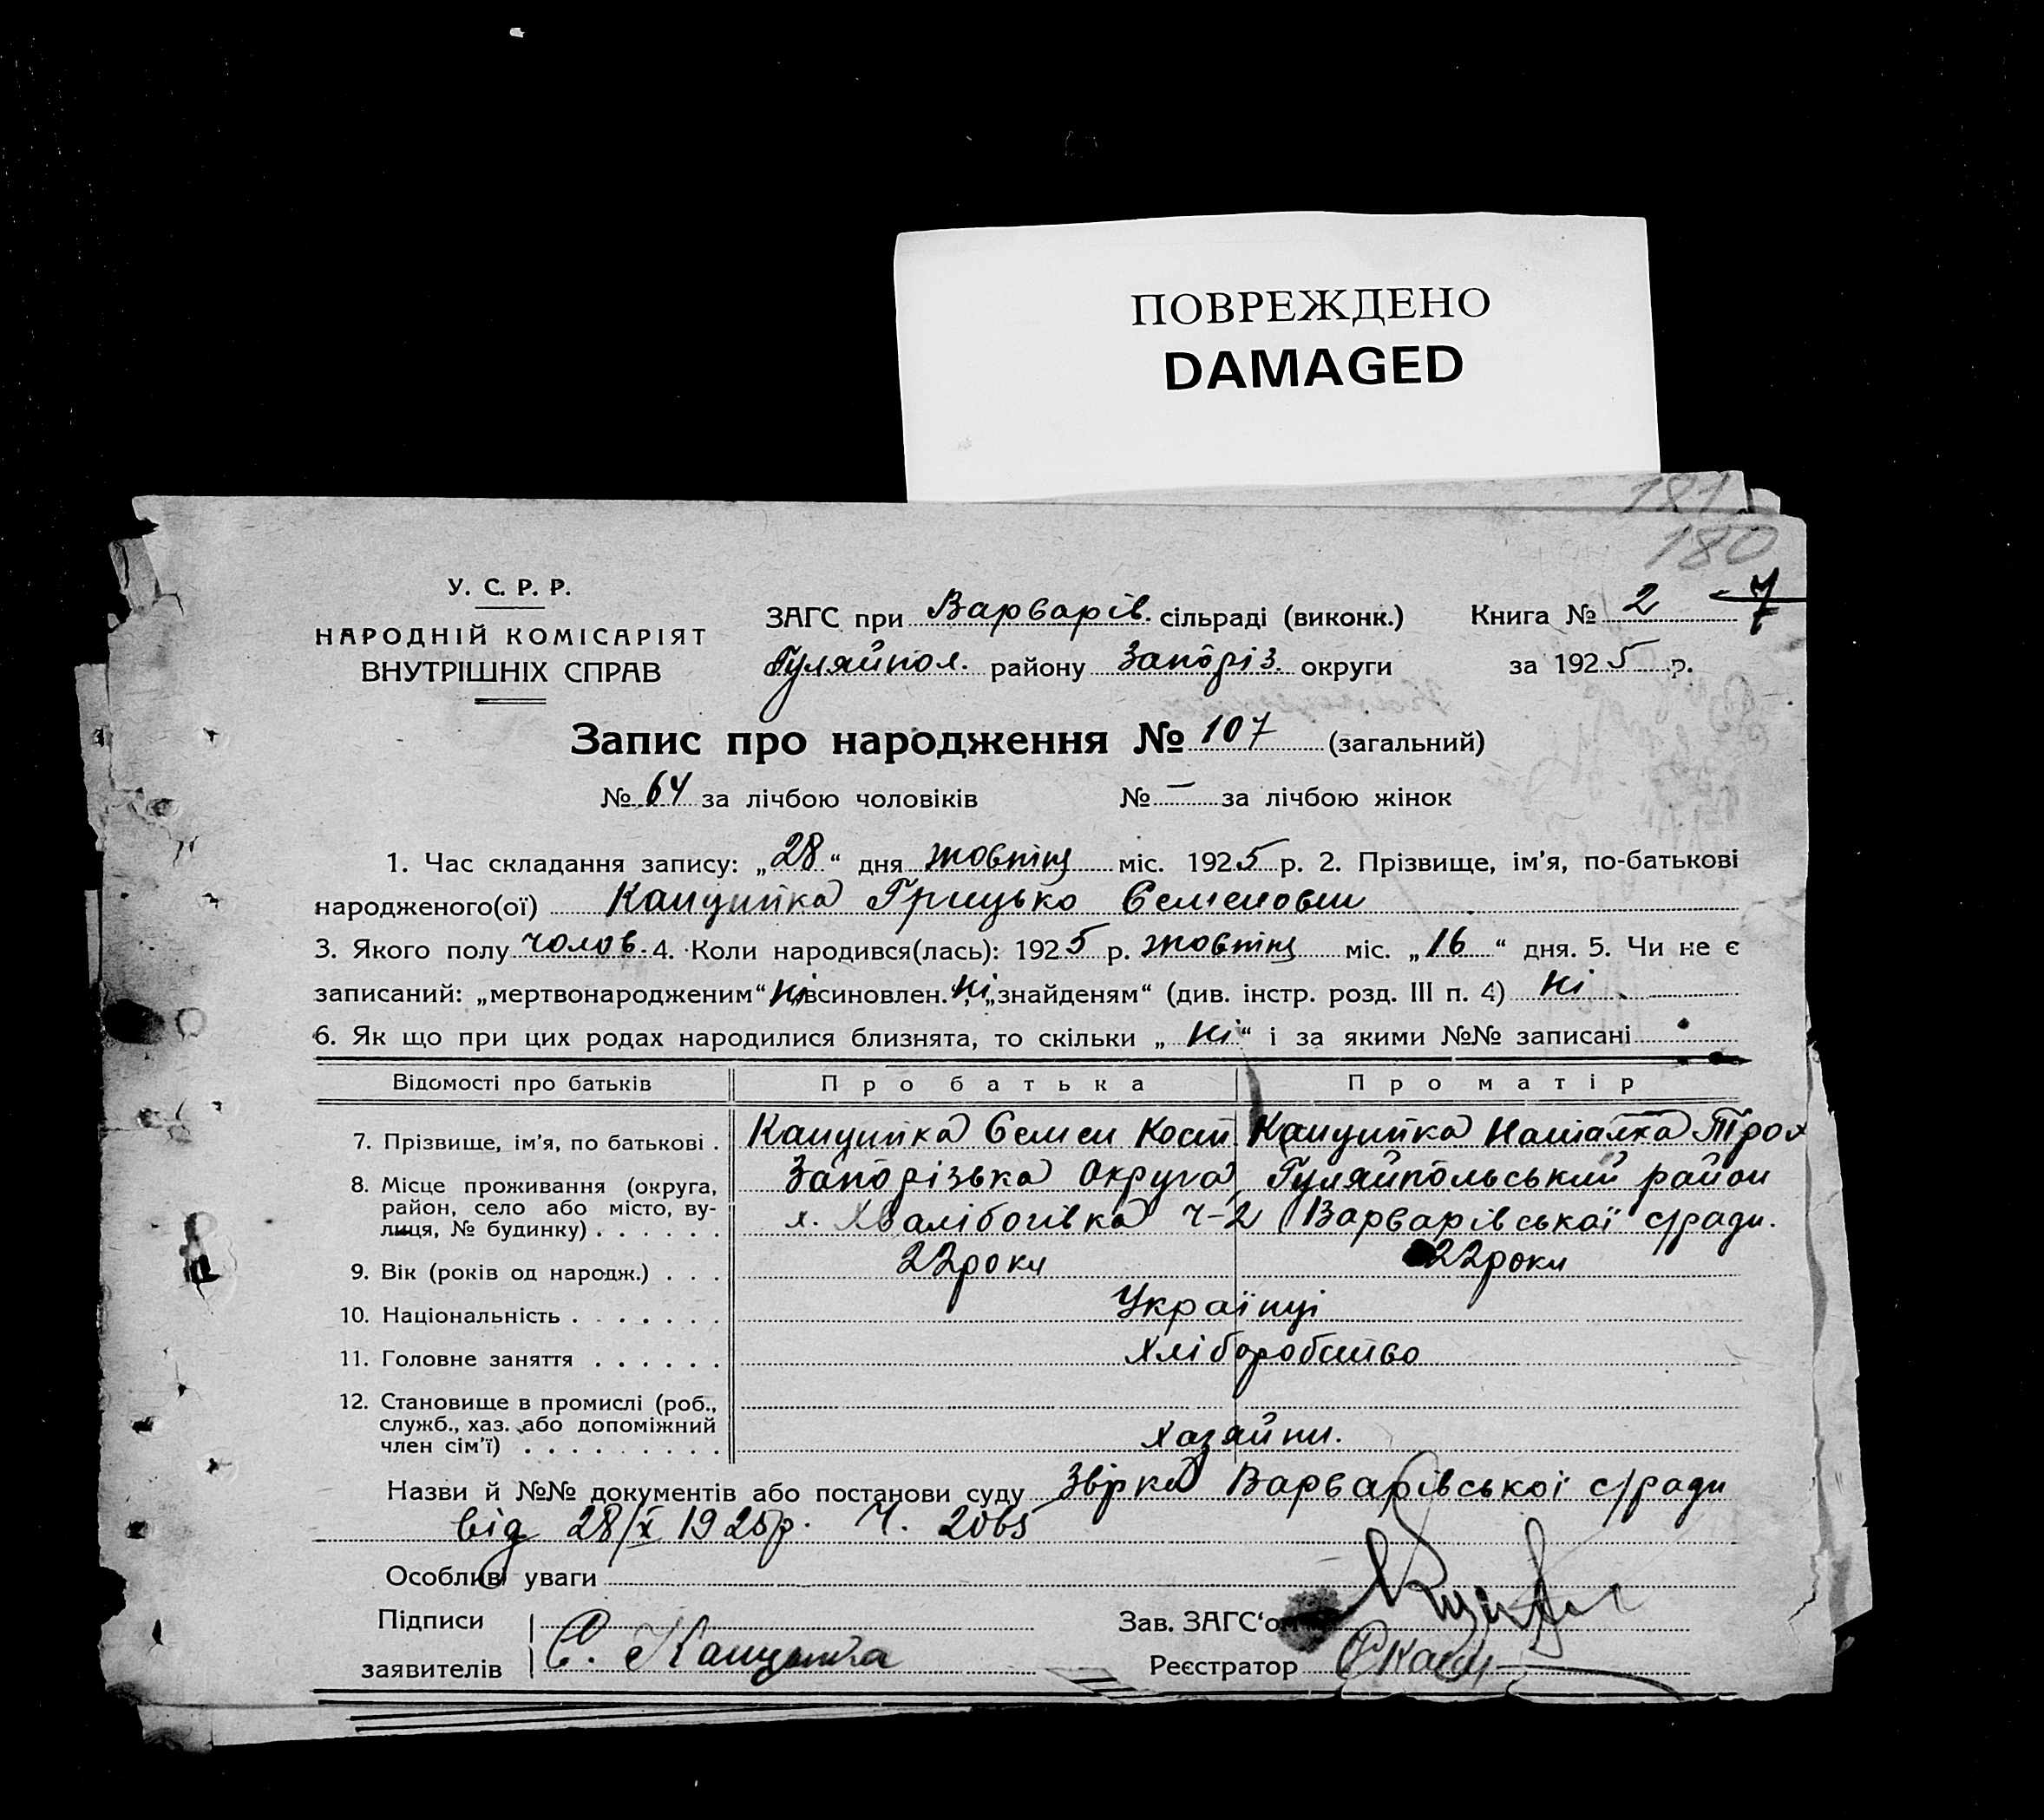 ПОВРЕЖДЕНО
DAMAGED
181
180
У. С. Р. Р.
НАРОДНІЙ КОМІСАРІЯТ
ВНУТРІШНІХ СПРАВ
ЗАГС при Варварів. сільраді (виконк.) Книга № 2 7
Гуляйпол. району Запоріз. округи за 1925 р.
Запис про народження № 107 (загальний)
№ 64 за лічбою чоловіків № — за лічбою жінок
1. Час складання запису: „28“ дня жовтня міс. 1925 р. 2. Прізвище, ім’я, по-батькові
народженого(ої) Капшитка Грицько Семенович
3. Якого полу чолов. 4. Коли народився(лась): 1925 р. жовтня міс. „16“ дня. 5. Чи не є
записаний: „мертвонародженим“ ні, всиновлен. ні, „знайденям“ (див. інстр. розд. III п. 4) ні
6. Як що при цих родах народилися близнята, то скільки „ ні “ і за якими №№ записані
Відомості про батьків Про батька Про матір
7. Прізвище, ім’я, по батькові . Семен Кост. Наталка Трох
8. Місце проживання (округа, Запорізька Округа Гуляйпольський район
район, село або місто, ву-
лиця, № будинку) . . . . . . х. Хвалібогівка ч-2 Варварівської с/ради.
9. Вік (років од народж.) . . . 22 роки 22 роки
10. Національність . . . . . . . Українці
11. Головне заняття . . . . . . Хліборобство
12. Становище в промислі (роб.,
служб., хаз. або допоміжний
член сім’ї) . . . . . . . . . хазяйни.
Назви й №№ документів або постанови суду Звірка Варварівської с/ради
від 28/X 1925 р. Ч. 2065
Особливі уваги
Підписи
заявителів С.
Зав. ЗАГС‘ом
Реєстратор